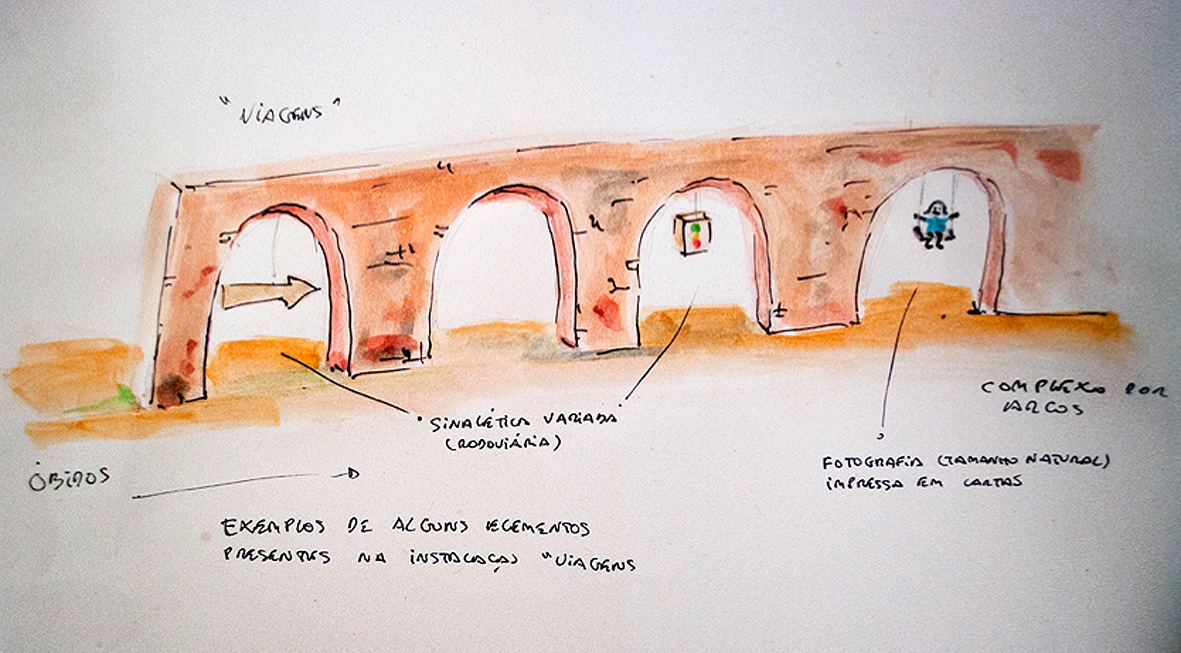 "VIAGENS"
COMPLEXO POR
ARCOS
"SINALÉTICA VARIADA"
(RODOVIÁRIA)
FOTOGRAFIA (TAMANHO NATURAL)
IMPRESSA EM
ÓBIDOS
EXEMPLOS DE ALGUNS ELEMENTOS
PRESENTES NA INSTALAÇÃO "VIAGENS